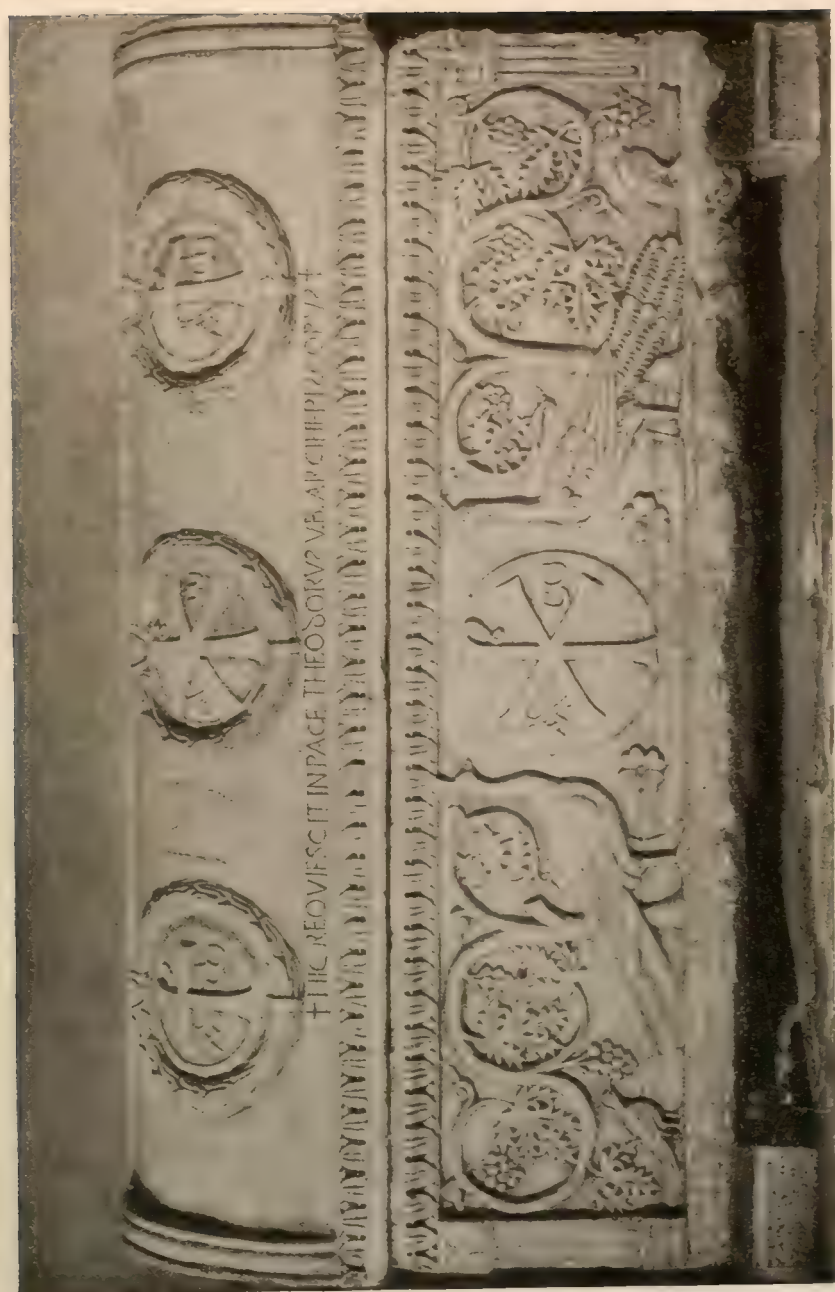 † HIC REQVIESCIT IN PACE THEODORVS V.B. ARCHIEPISCOPVS †